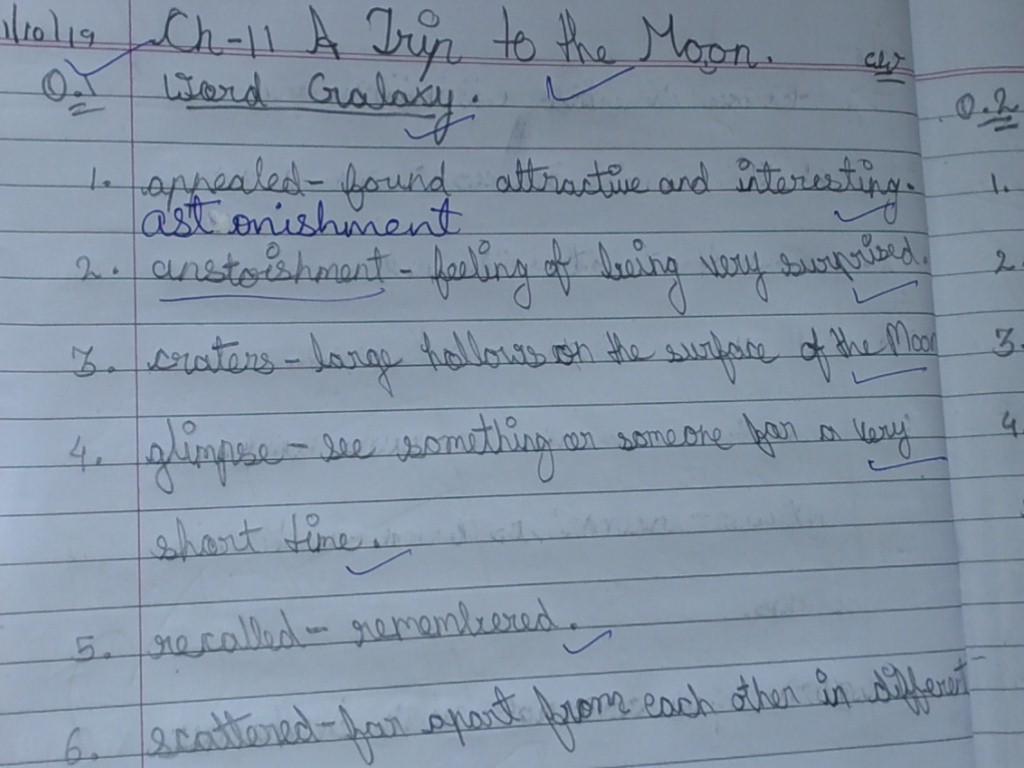 1/10/19 Ch-11 A Trip to the Moon. CW
Q.1 Word Galaxy.
1. appealed - found attractive and interesting.
astonishment
2. anstoishment - feeling of being very surprised.
3. craters - large hollows on the surface of the Moon
4. glimpse - see something or someone for a very
short time.
5. recalled - remembered.
6. scattered - far apart from each other in different
Q.2
1.
2.
3.
4.